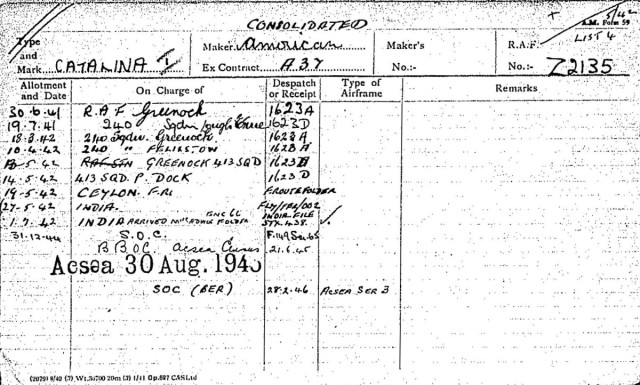 CONSOLIDATED
5/42
A.M. Form 59
LIST 4
Type and Mark CATALINA I
Maker American
Maker's No:-
R.A.F. No:- Z2135
Ex Contract A.37
Allotment and Date On Charge of Despatch or Receipt Type of Airframe Remarks
30.6.41 R.A.F Greenock 1623A
19.7.41 240 Sqdn Lough Erne 1623D
18.3.42 240 Sqdn. Greenock 1623A
10.4.42 240 " FELIXSTOW 1623A
5.42 GREENOCK 413 SQD 1623
14.5.42 413 SQD. P. DOCK 1623 D
19.5.42 CEYLON. F.R. F.ROUTE FOLDER
27-5.42 INDIA. FLY/
1.7.42 INDIA ARRIVED FOLDER INDIA FILE
31.12.44 S.O.C.
B.B.O.C. Acsea 21.6.45
Acsea 30 Aug. 1945
SOC (BER) 28.2.46 ACSEA SER 3
(2079) 9/40 (7) Wt.30700 20m (3) 1/41 Op.687 CASLtd